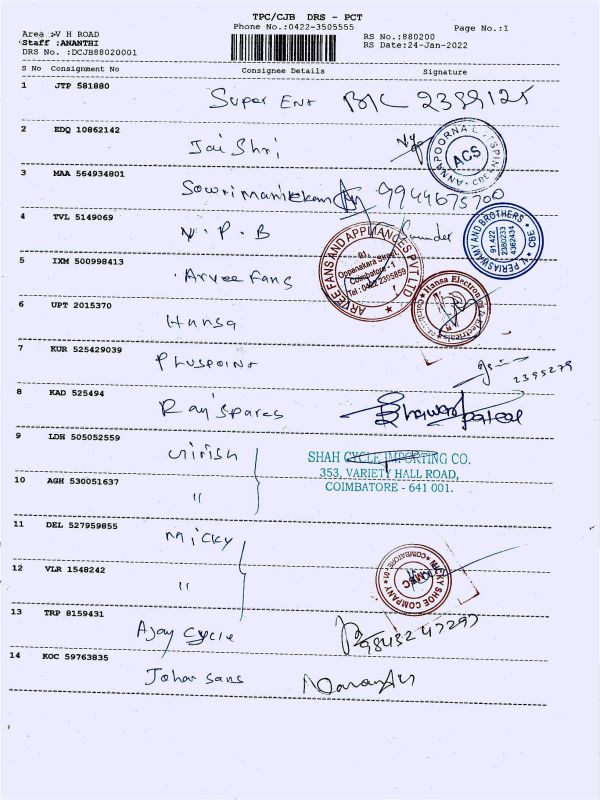 TPC/CJB DRS - PCT
Phone No.:0422-3505555 Page No.:1
Area :V H ROAD RS No.:880200
Staff :ANANTHI RS Date:24-Jan-2022
DRS No. :DCJB88020001
S No Consignment No Consignee Details Signature
1 JTP 581880
Super Ent B/C 2399125
2 EDQ 10862142
Jai Shri
ANNAPOORNA ACS CBE
3 MAA 564934801
Sowri Manikkam 9944675700
4 TVL 5149069
N.P.B Sounder
V. PERIASWAMY AND BROTHERS CBE 91422 2380233 4382434
5 IXM 500998413
Arvee Fans
ARVEE FANS AND APPLIANCES PVT LTD
91, Oppanakara Street Coimbatore - 1 Tel: 0422 2395859
6 UPT 2015370
Hansa
Hansa Electronics & Electricals
7 KUR 525429039
Pluspoint
2395279
8 KAD 525494
Raj Spares
9 LDH 505052559
Girish
SHAH CYCLE IMPORTING CO.
353, VARIETY HALL ROAD,
COIMBATORE - 641 001.
10 AGH 530051637
"
11 DEL 527959855
Micky
12 VLR 1548242
"
MICKY SHOE COMPANY COIMBATORE - 01
13 TRP 8159431
Ajay Cycle 9843247297
14 KOC 59763835
Johar Sans